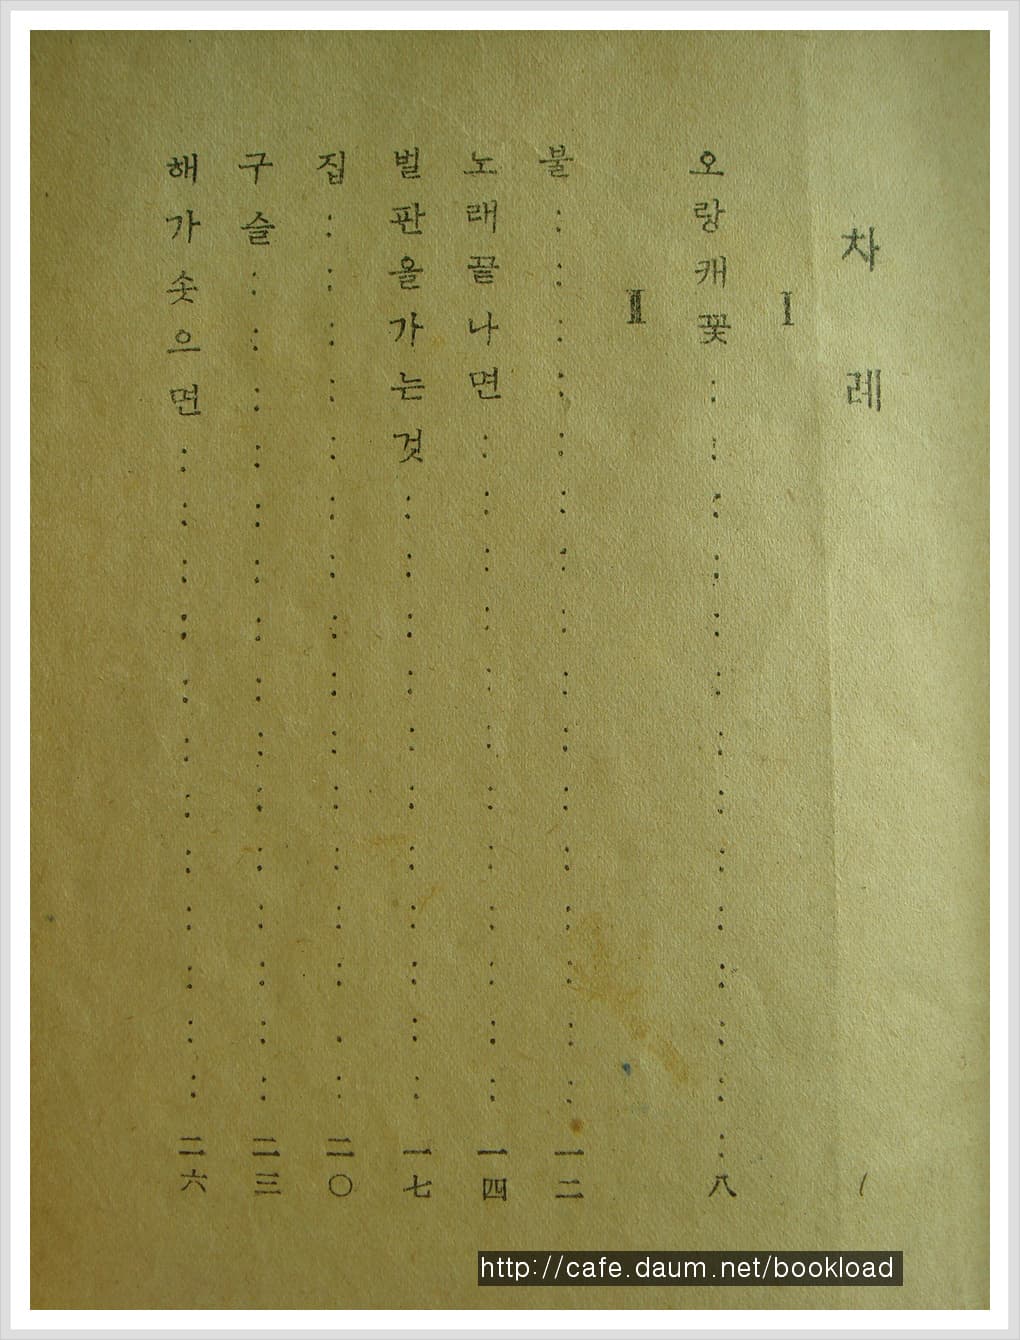 차레
Ⅰ
오랑캐꽃……八
Ⅱ
불……一二
노래끝나면……一四
벌판을가는것……一七
집……二〇
구슬……二三
해가솟으면……二六
http://cafe.daum.net/bookload